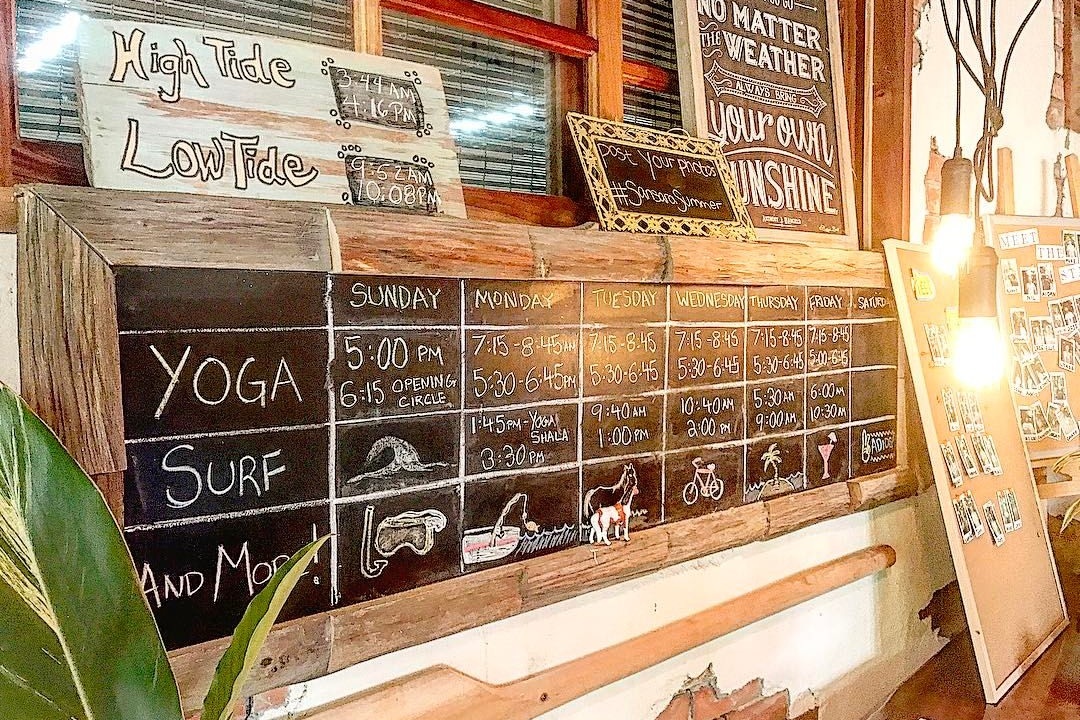 High Tide
3:44 AM
4:16 PM
Low Tide
9:52 AM
10:08 PM
post your photos
#SansaraSummer
NO MATTER
THE WEATHER
ALWAYS BRING
your own
SUNSHINE
MEET THE
SUNDAY MONDAY TUESDAY WEDNESDAY THURSDAY FRIDAY SATURD
YOGA
5:00 PM
6:15 OPENING CIRCLE
7:15-8:45AM
5:30-6:45PM
7:15-8:45
5:30-6:45
7:15-8:45
5:30-6:45
7:15-8:45
5:30-6:45
7:15-8:45
5:00-6:45
SURF
1:45PM-YOGA SHALA
3:30PM
9:40AM
1:00PM
10:40AM
2:00 PM
5:30AM
9:00AM
6:00AM
10:30AM
AND MORE!